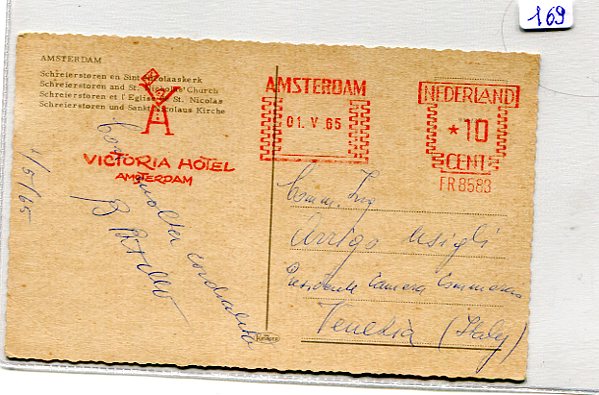 169
AMSTERDAM
Schreierstoren en Sint Nicolaaskerk
Schreierstoren and St. Nicholas' Church
Schreierstoren et l'Eglise St. Nicolas
Schreierstoren und Sankt Nikolaus Kirche
VICTORIA HÔTEL
AMSTERDAM
AMSTERDAM
01. V .65
NEDERLAND
*10
CENT
FR 8583
1/5/65
molta cordialità
Comm. Ing
Arrigo Usigli
Presidente Camera Commercio
Venezia (Italy)